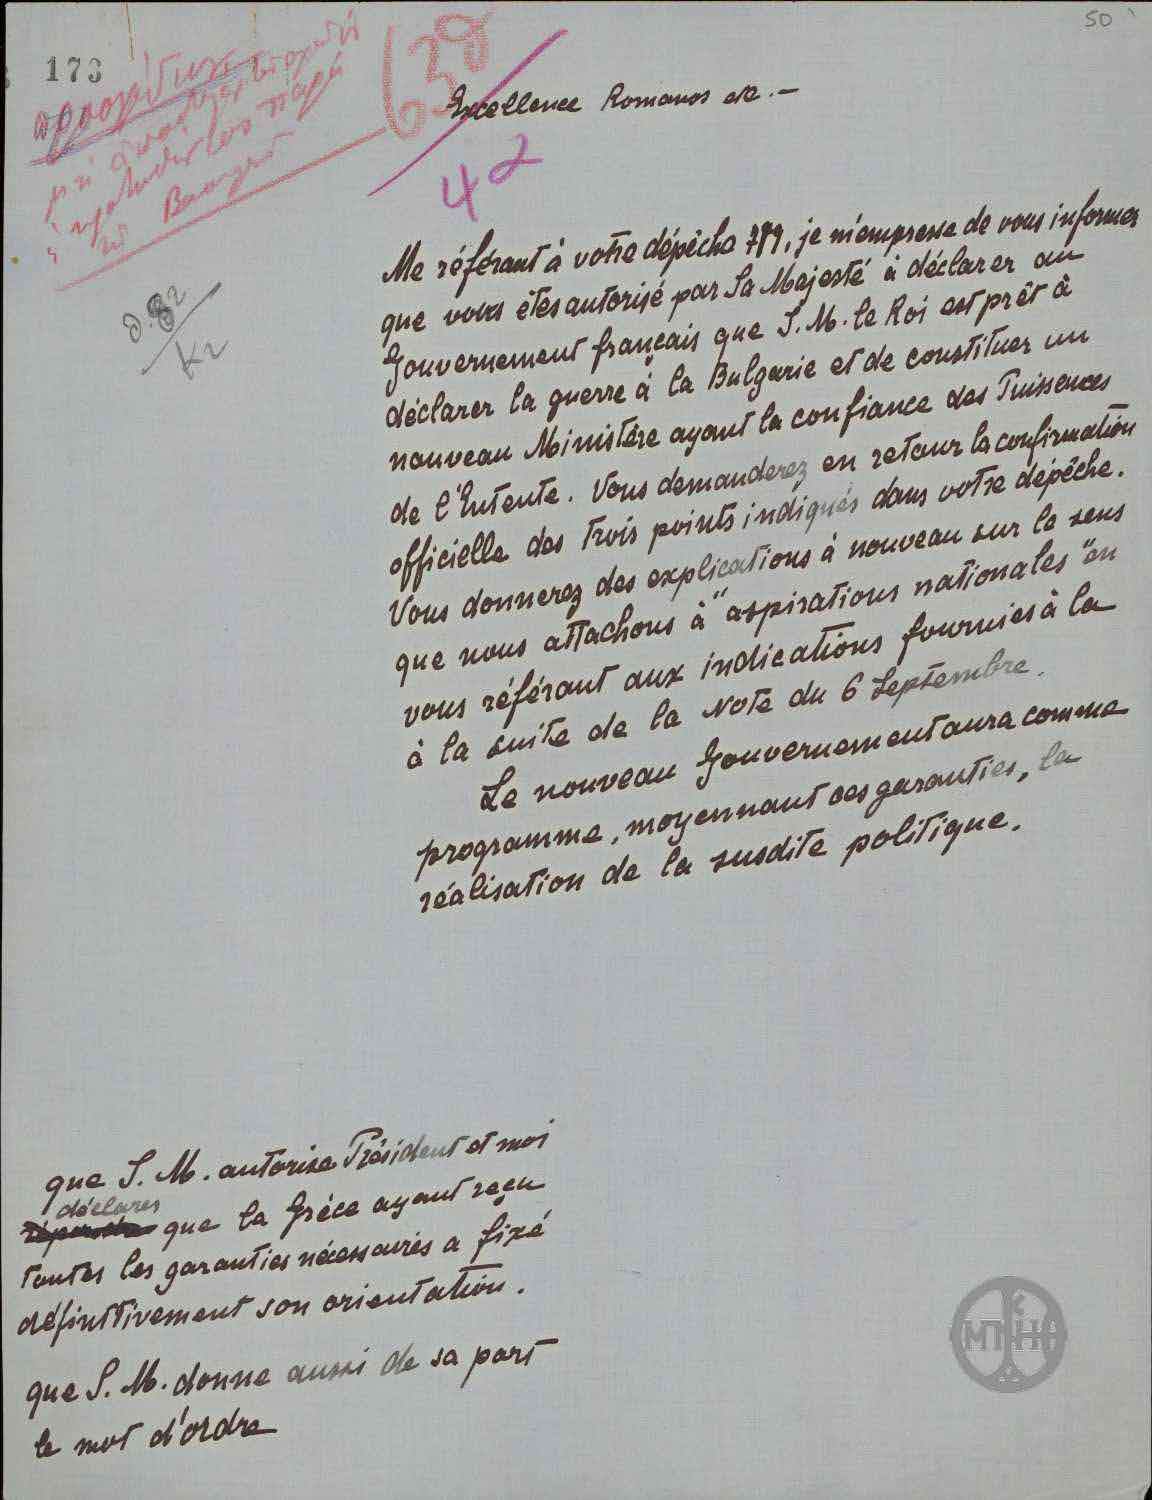 50
173
638
42
Excellence Romanos etc. -
Me référant à votre dépêche 789, je m'empresse de vous informer
que vous êtes autorisé par Sa Majesté à déclarer au
Gouvernement français que S. M. le Roi est prêt à
déclarer la guerre à la Bulgarie et de constituer un
nouveau Ministère ayant la confiance des Puissences
de l'Entente. Vous demanderez en retour la confirmation
officielle des trois points indiqués dans votre dépêche.
Vous donnerez des explications à nouveau sur le sens
que nous attachons à "aspirations nationales" en
vous référant aux indications fournies à la
à la suite de la Note du 6 Septembre.
Le nouveau Gouvernement aura comme
programme, moyennant ces garanties, la
réalisation de la susdite politique.
que S. M. autorise Président et moi
déclarer
que la Grèce ayant reçu
toutes les garanties nécessaires a fixé
définitivement son orientation.
que S. M. donne aussi de sa part
le mot d'ordre